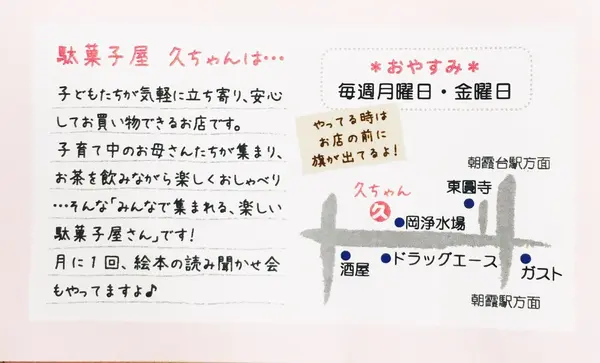 駄菓子屋 久ちゃんは…
子どもたちが気軽に立ち寄り、安心
してお買い物できるお店です。
子育て中のお母さんたちが集まり、
お茶を飲みながら楽しくおしゃべり
…そんな「みんなで集まれる、楽しい
駄菓子屋さん」です!
月に1回、絵本の読み聞かせ会
もやってますよ♪
*おやすみ*
毎週月曜日・金曜日
やってる時は
お店の前に
旗が出てるよ!
朝霞台駅方面
久ちゃん
久
東圓寺
岡浄水場
酒屋
ドラッグエース
ガスト
朝霞駅方面